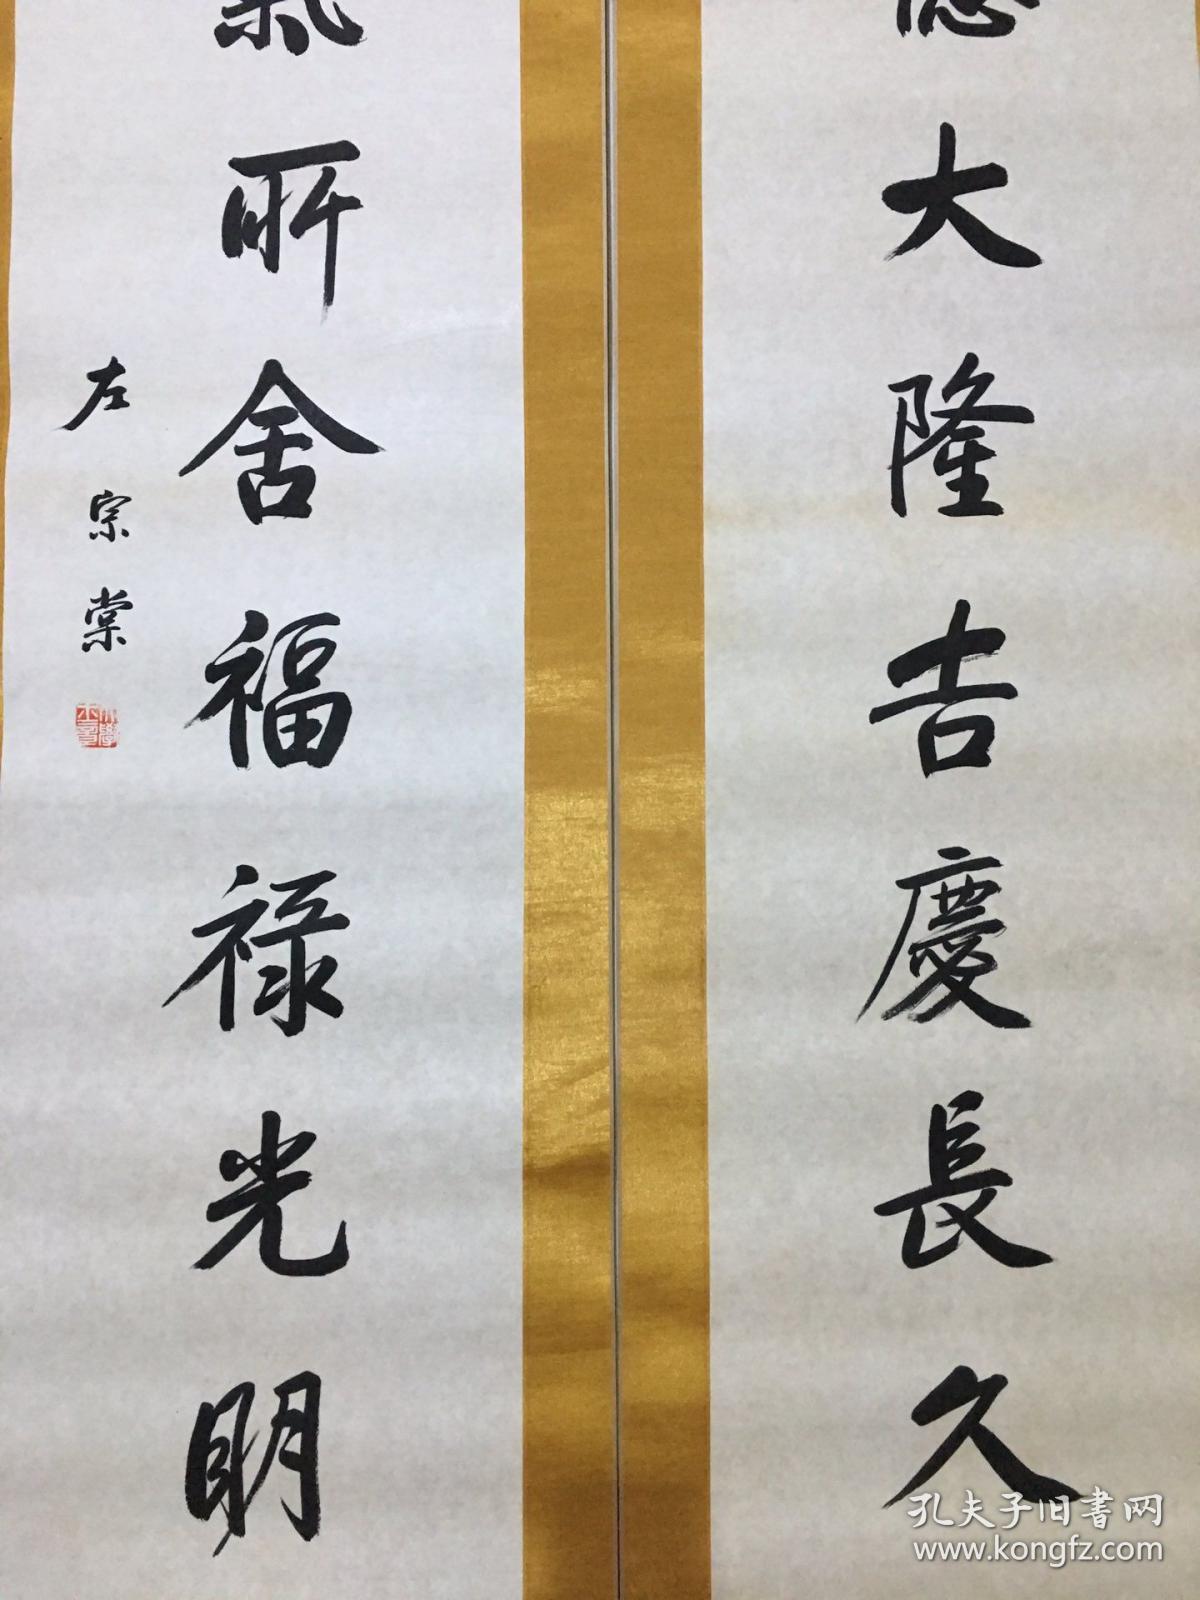 德大隆吉慶長久
氣所舍福祿光明
左宗棠
孔夫子旧书网
www.kongfz.com